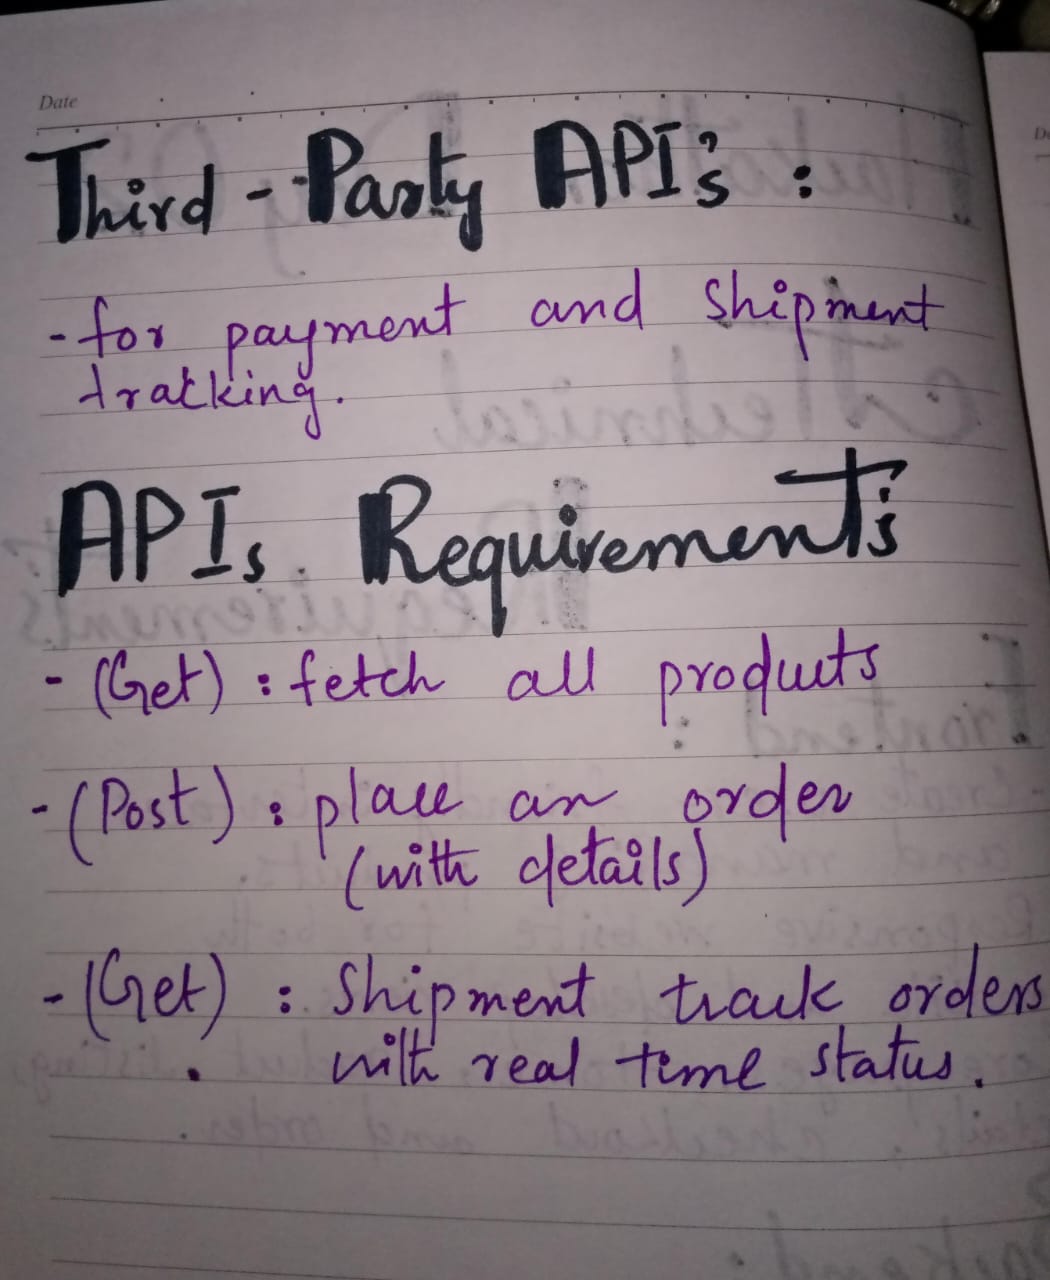 Date
Third - Party API's :
- for payment and Shipment
tracking.
APIs Requirements
- (Get) : fetch all products
- (Post) : place an order
(with details)
- (Get) : Shipment track orders
with real time status.